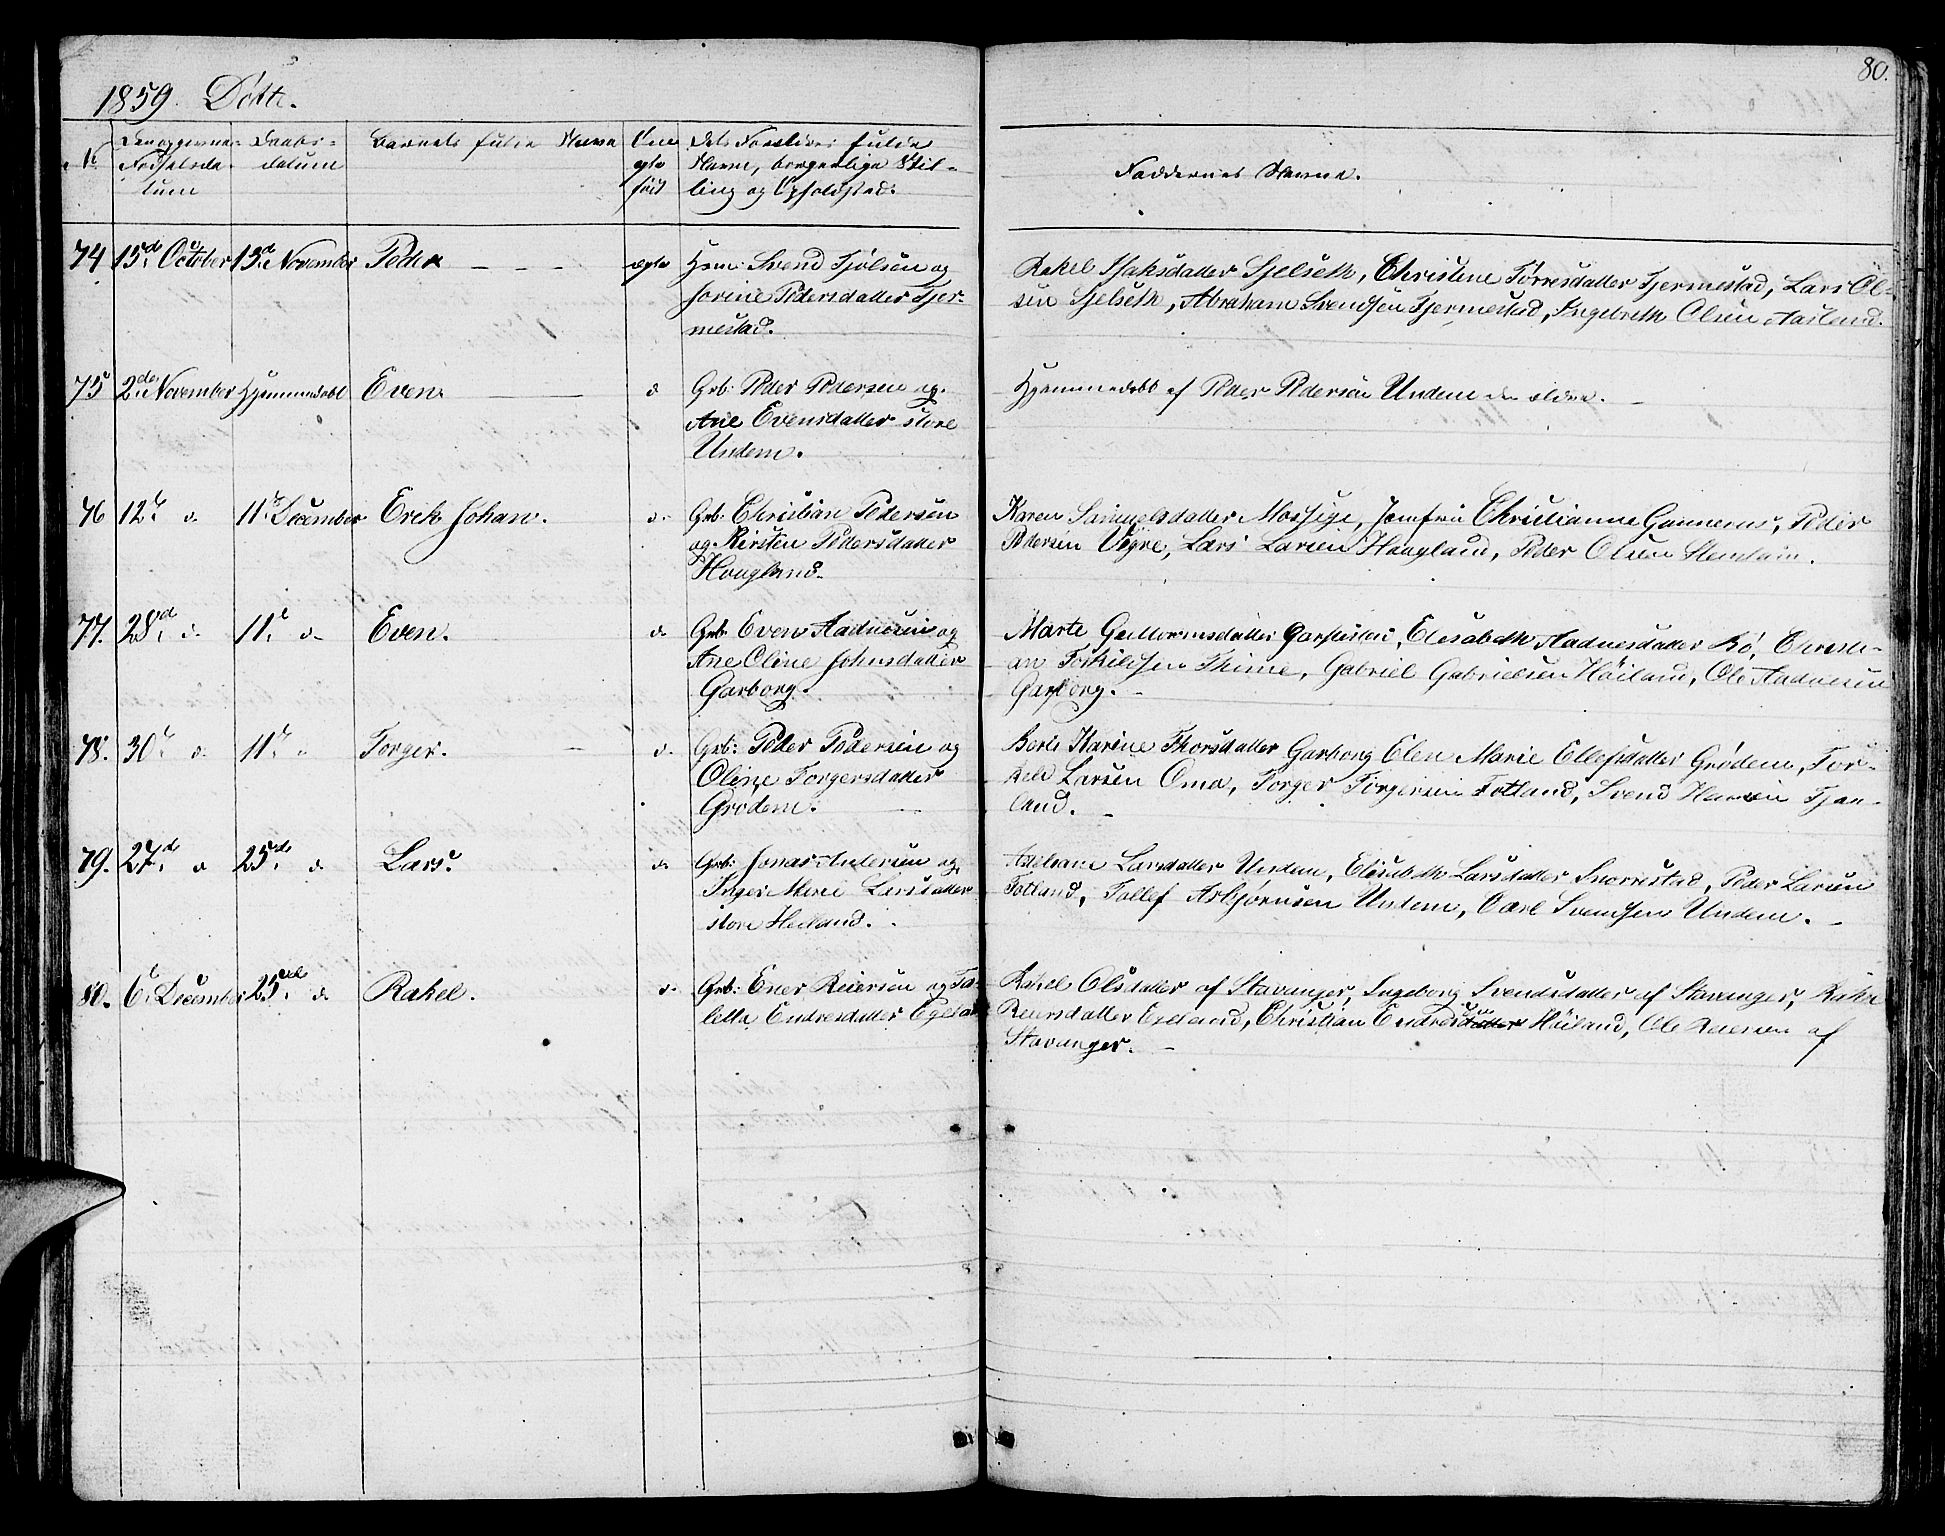 80.
1859. Døbte.
No
Den opgivne
Fødselsda-
tum
Daabs-
datum
Barnets fulde Navn
Om
ægte
født
Dets Forældres fulde
Navn, borgerlige Stil-
ling og Opholdsted.
Faddernes Navne.
74 15de October 13de November Peder ægte Hsm: Svend Tjølsen og
Serine Pedersdatter Tjer-
mestad.
Rakel Isaksdatter Sjelseth, Christene Tørresdatter Tjermestad, Lars Ol-
sen Sjelseth, Abraham Svendsen Tjermestad, Ingebreth Olsen Aasland.
75 2de November Hjemmedøbt Even. d Grb: Peder Pedersen og
Ane Evensdatter store
Undem.
Hjemmedøbt af Peder Pedersen Undem den ældre.
76 12te d. 11te December Erik Johan. d. Grb: Christian Pedersen
og Kirsten Pedersdatter
Hougland.
Karen Samuelsdatter Mossige, Jomfru Christianne Gunnerus, Peder
Pedersen Vegre, Lars Larsen Haagland, Peder Olsen
77. 28de d. 11te d. Even. d. Grb: Even Aadnesen og
Ane Oline Johnsdatter
Garborg.
Marte Guttormsdatter Garpestad, Elisabeth Aadnesdatter Bø, Christi-
an Torkildsen Thime, Gabriel Gabrielsen Höiland, Ole Aadnesen
Garborg.
78. 30te d. 11te " Torger. d. Grb: Peder Pedersen og
Oline Torgersdatter
Grødem.
Berte Karine Thorsdatter Garborg Elen Marie Ellefsdatter Grødem, Tor-
keld Larsen Oma, Torger Torgersen Fotland, Svend Hansen Tjaa-
land.
79. 27de d 25de d Lars. d. Grb: Jonas Andersen og
Inger Merie Larsdatter
store Heiland.
Larsdatter Undem, Elisabeth Larsdatter Snorrestad, Peder Larsen
Fotland, Tollef Asbjørnsen Undem, Carl Svendsen Undem.
80. 6te December 25de d Rakel. d. Grb: Ener Reiersen og Ta-
letta Endresdatter Egeland
Rakel Olsdatter af Stavanger, Ingeborg Svendsdatter af Stavanger, Rakel
Reiersdatter Egeland, Christian Endresdatter Höiland, Ole Reiersen af
Stavanger.